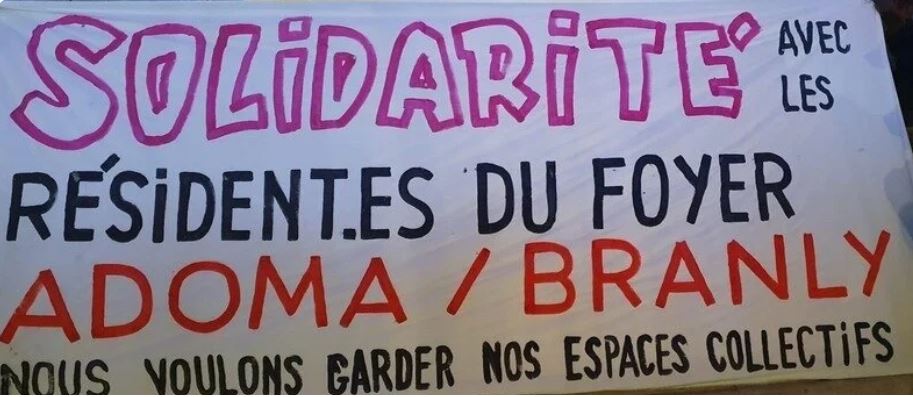 SOLiDARiTÉ AVEC
LES
RÉSiDENT.ES DU FOYER
ADOMA / BRANLY
NOUS VOULONS GARDER NOS ESPACES COLLECTiFS